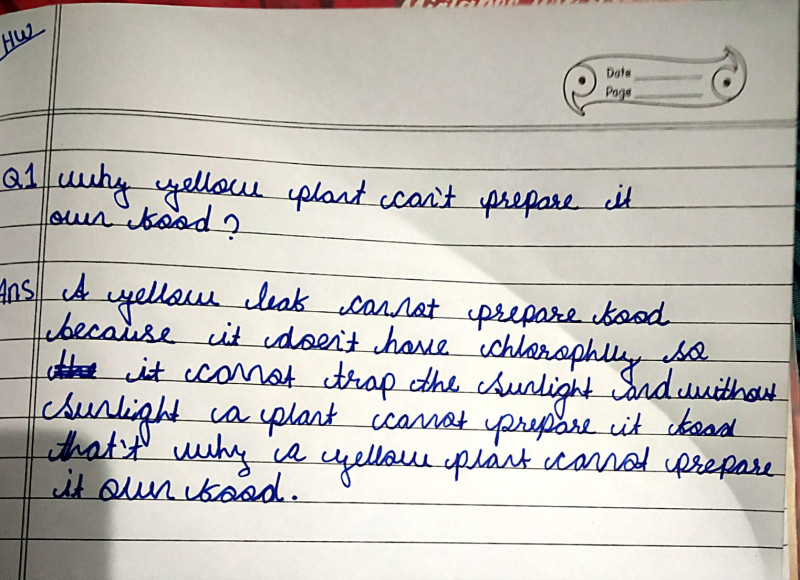 HW
Date
Page
Q1 why yellow plant can't prepare it
own food?
Ans A yellow leaf cannot prepare food
because it doesn't have chlorophlly so
it cannot trap the sunlight and without
sunlight a plant cannot prepare it food
that't why a yellow plant cannot prepare
it own food.